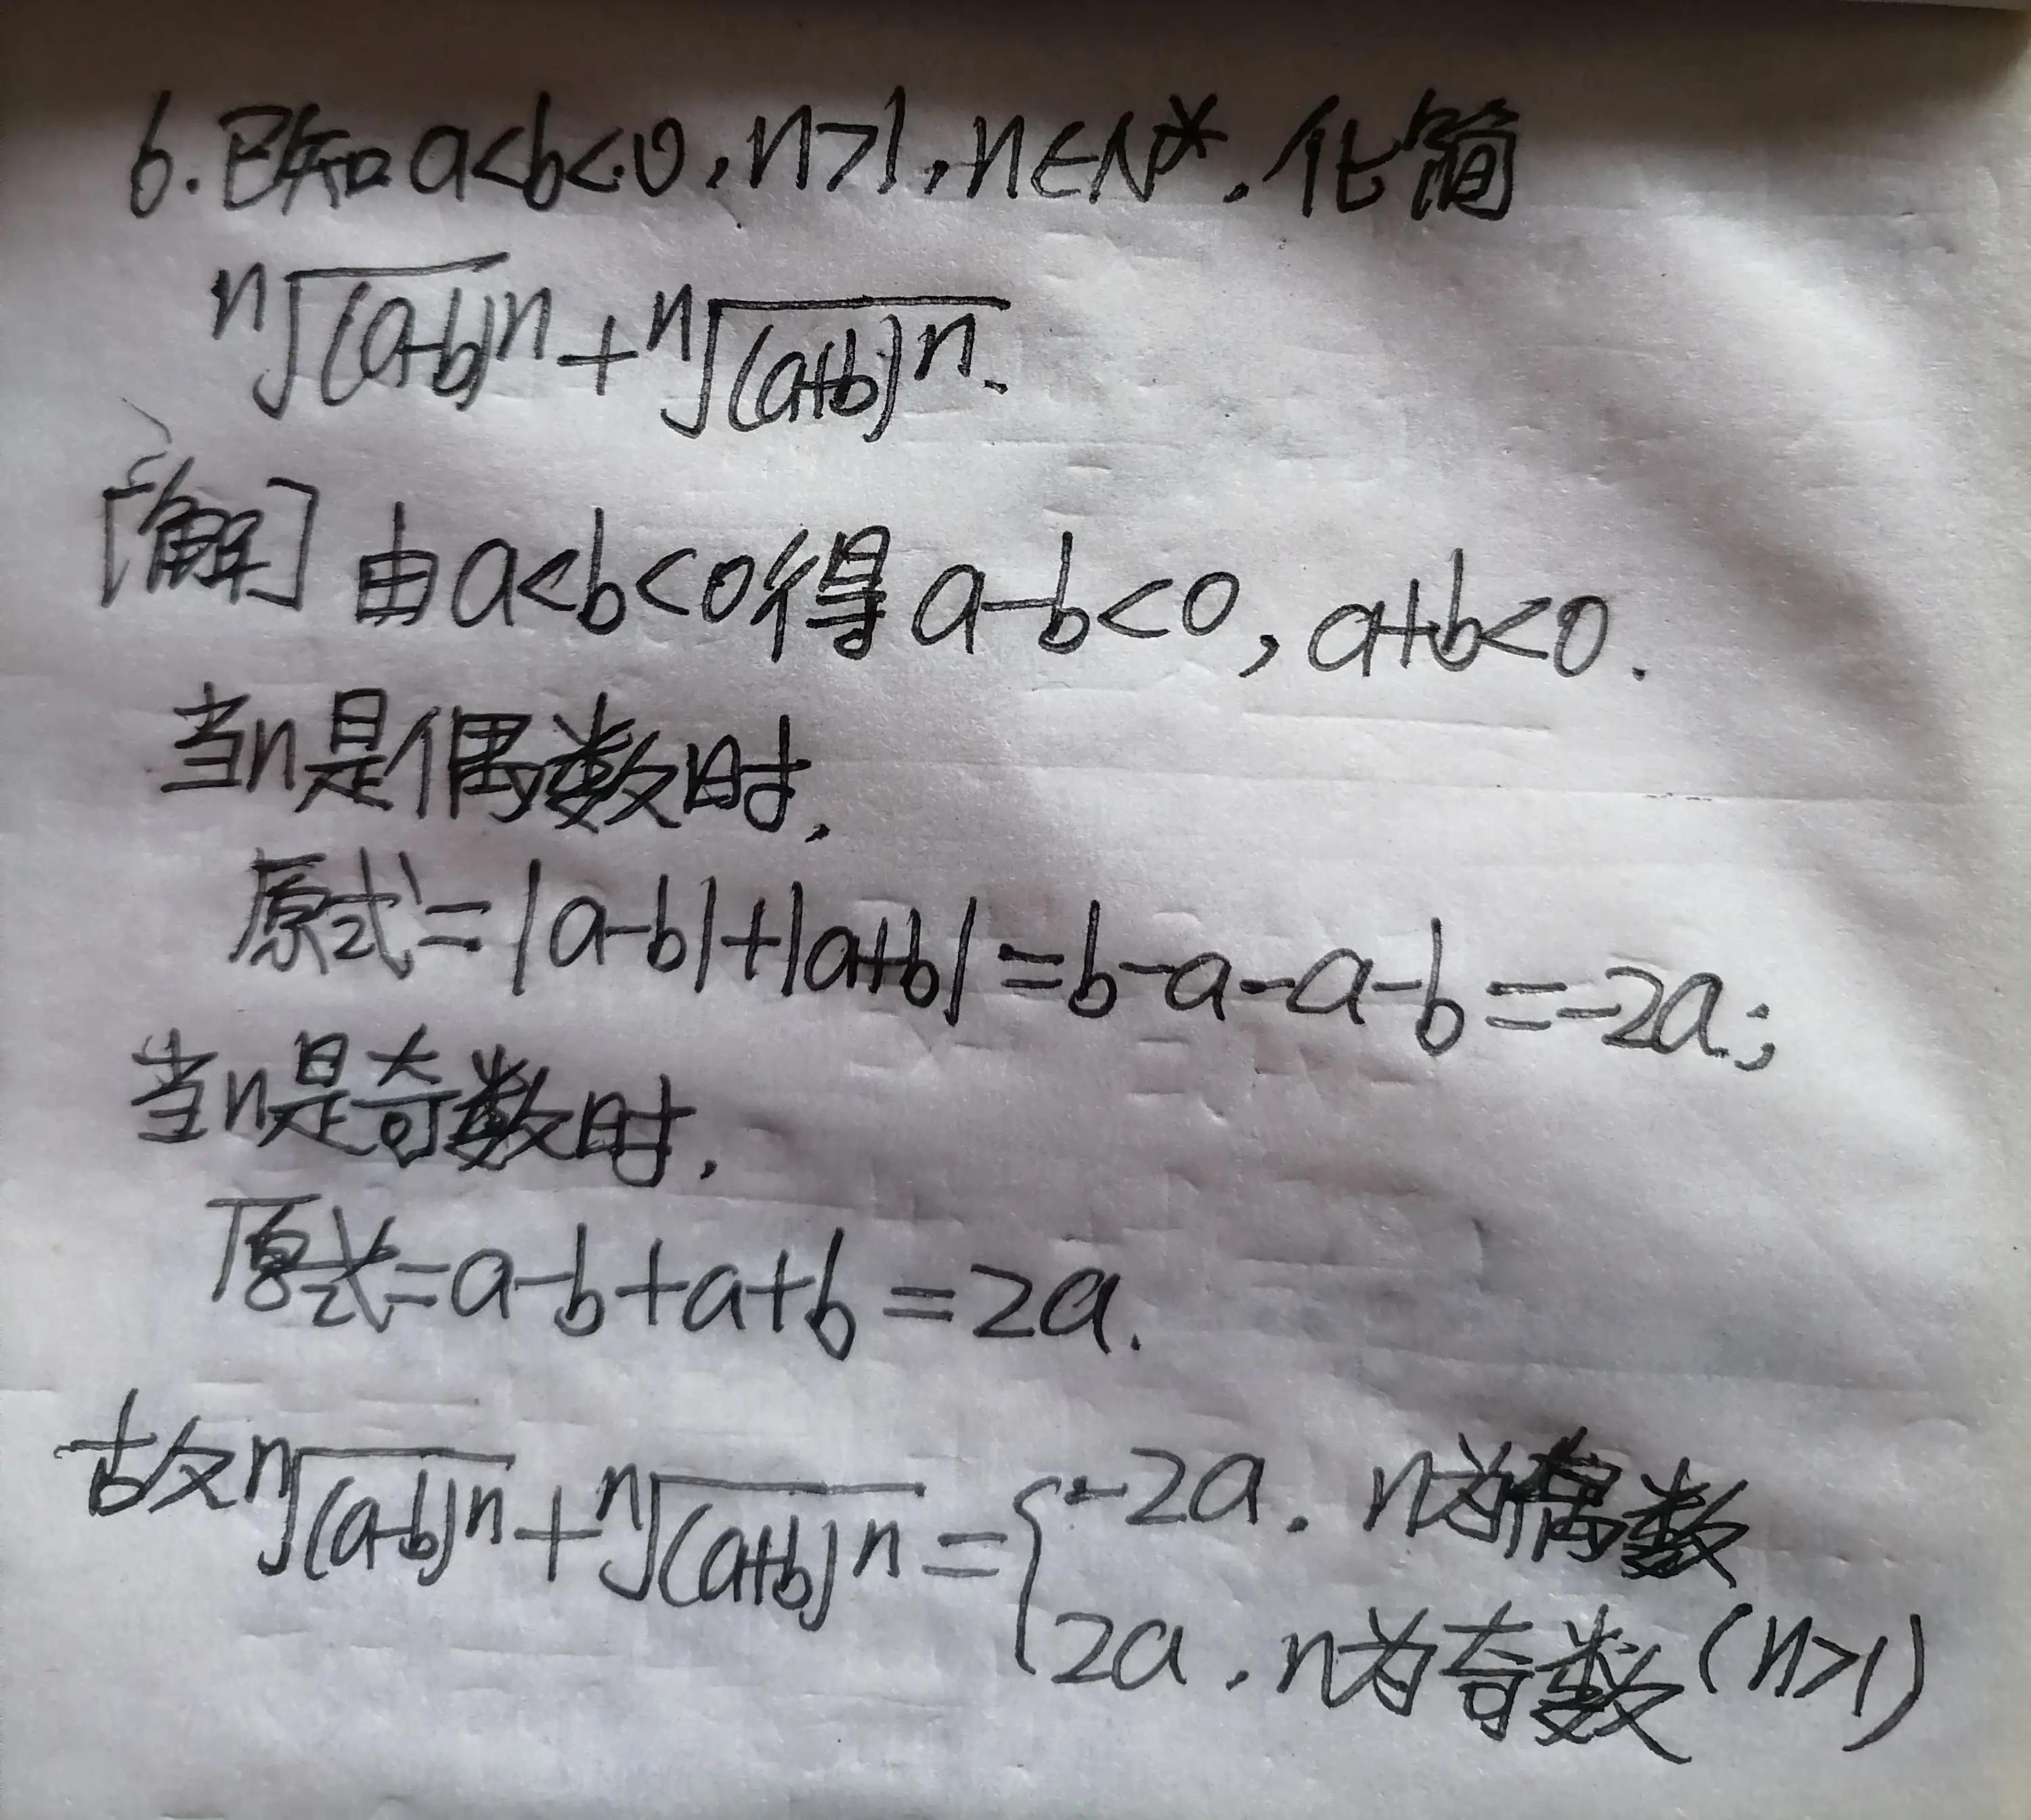 6.已知a<b<0,n>1,n∈N*,化简
ⁿ√(a-b)ⁿ+ⁿ√(a+b)ⁿ.
[解]由a<b<0得a-b<0,a+b<0.
当n是偶数时,
原式=|a-b|+|a+b|=b-a-a-b=-2a;
当n是奇数时,
原式=a-b+a+b=2a.
故ⁿ√(a-b)ⁿ+ⁿ√(a+b)ⁿ={-2a,n为偶数
2a,n为奇数(n>1)